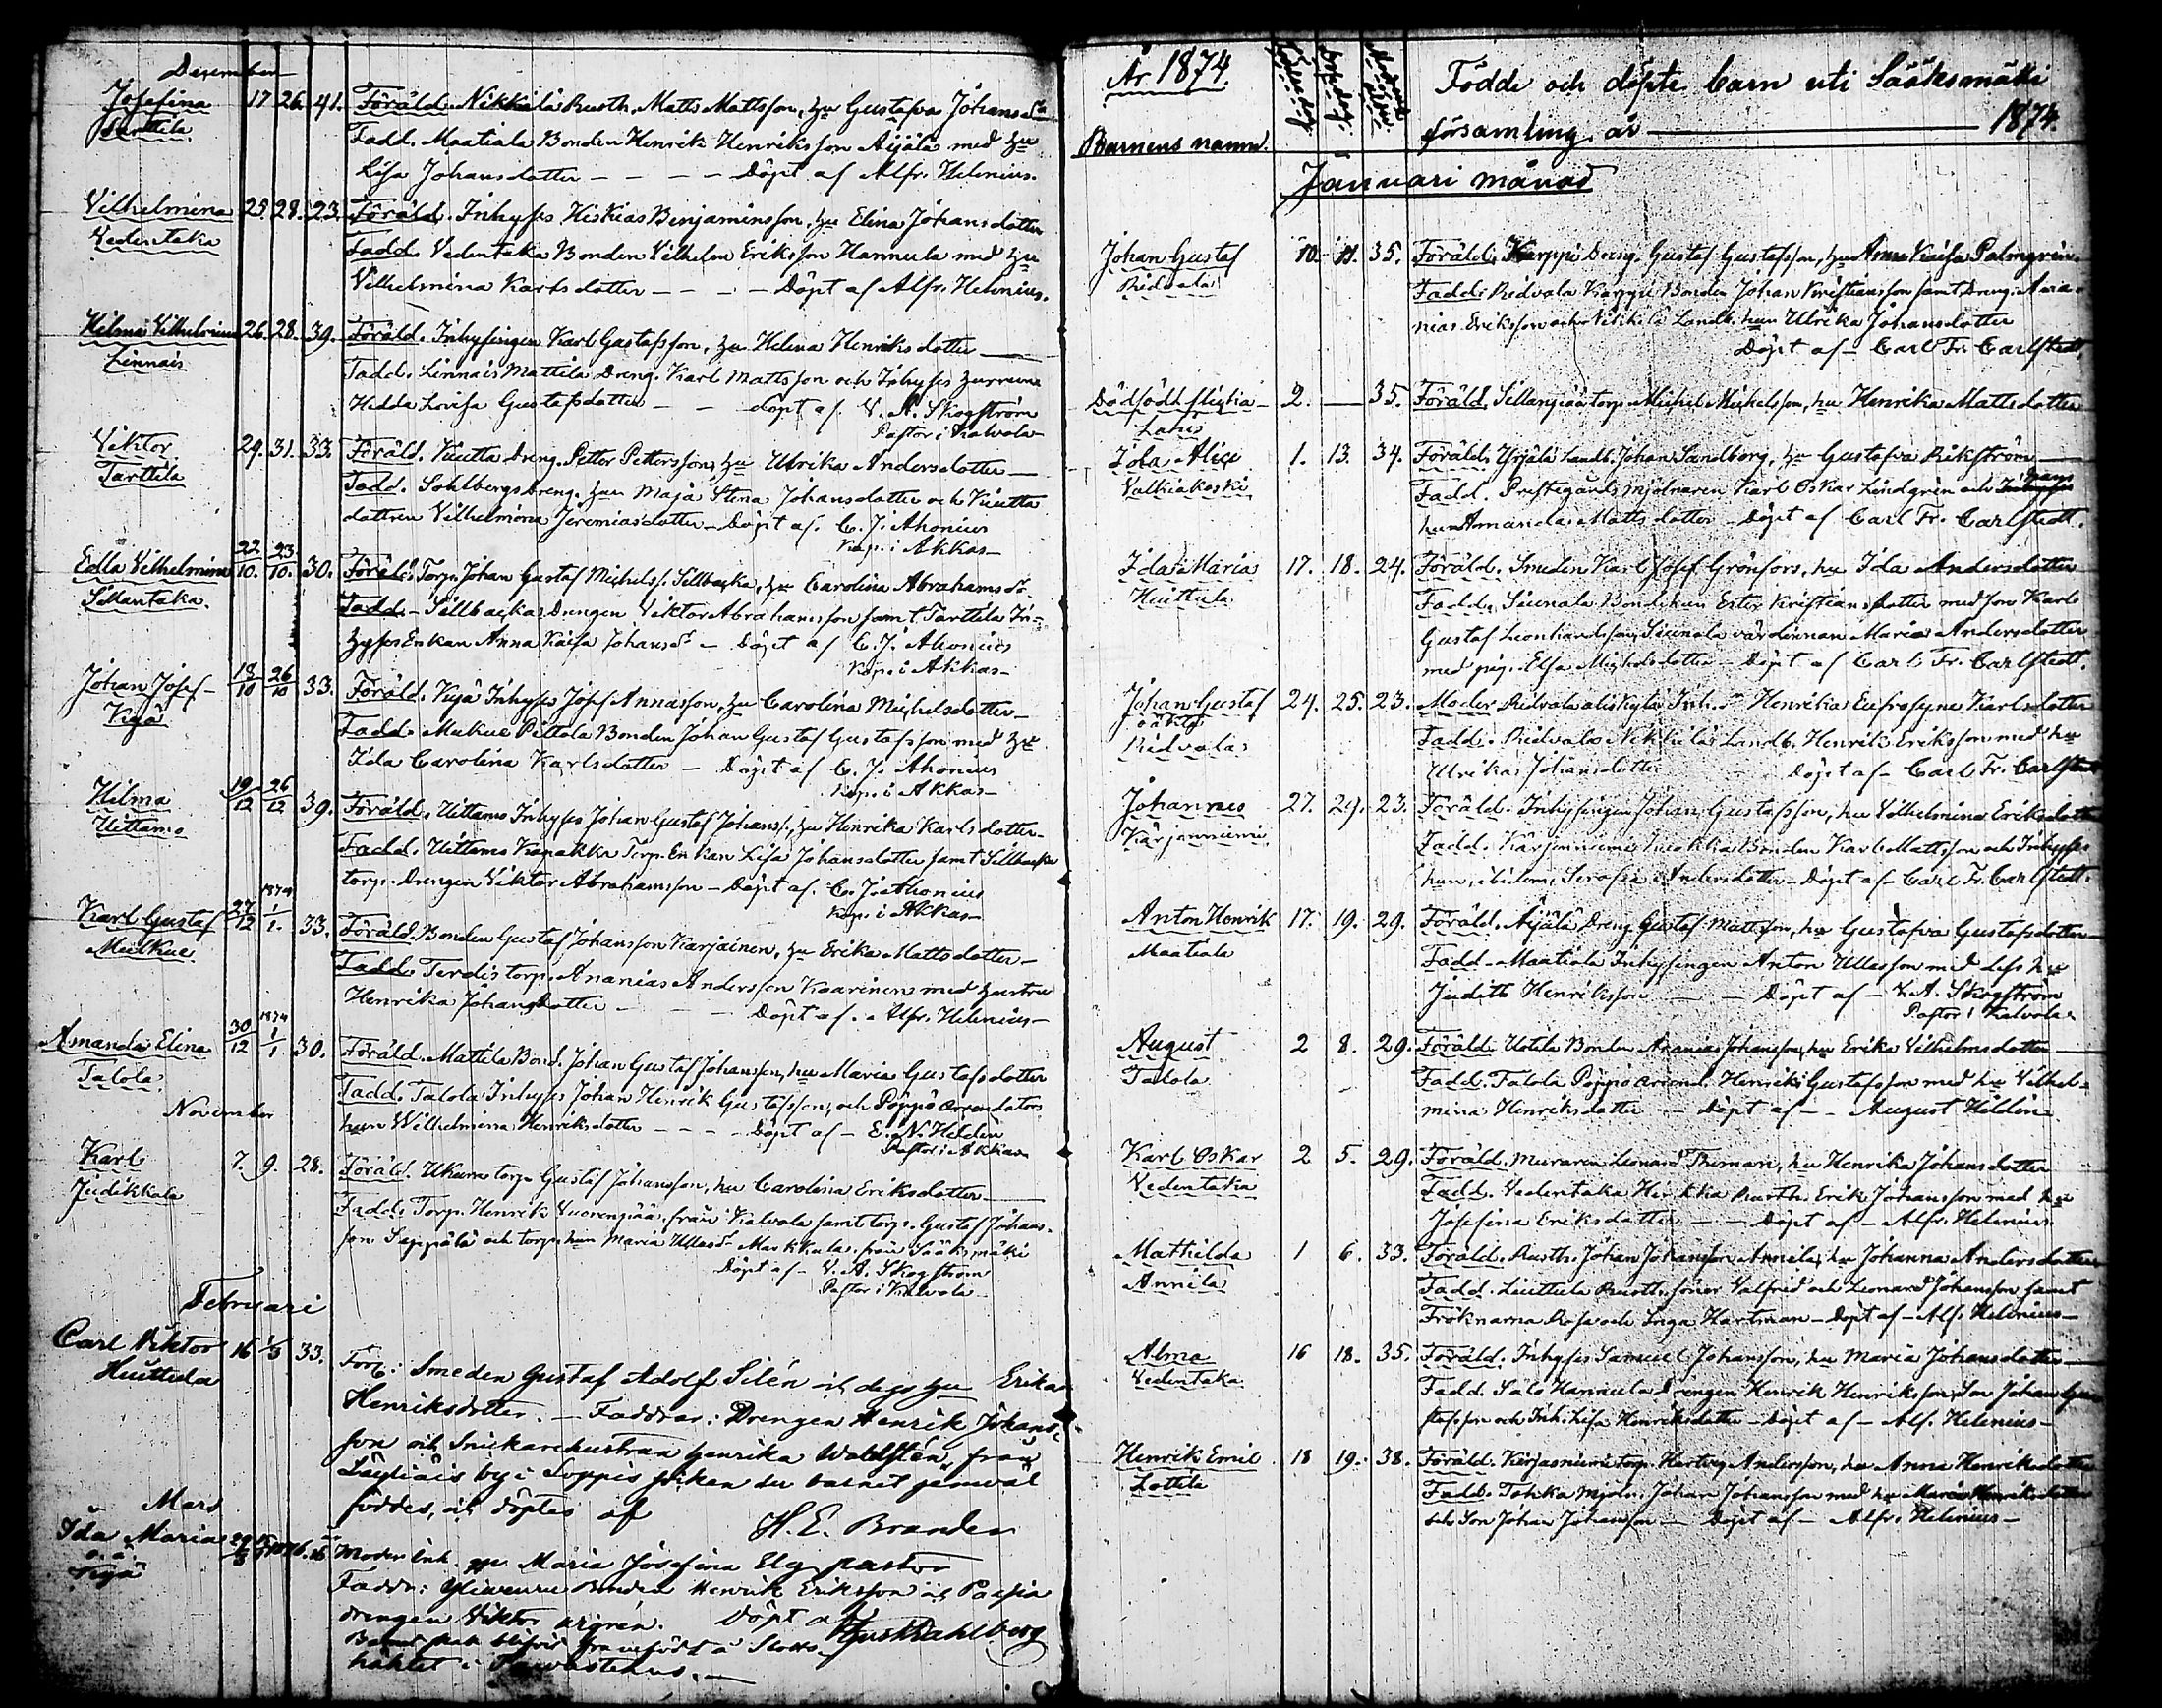 December
Josefina 17 26 41. Föräld. Nikkilä Rusth. Matts Mattsson, hu Gustafva Johansdr
Tarttila Fadd. Maatiala Bonden Henrik Henriksson Äijälä med hu
Lisa Johansdotter - - - - Döpt af Alfr. Helenius.
Vilhelmina 25. 28. 23. Föräld. Inhyses Hiskias Benjaminsson, hu Elina Johansdotter
Vedentaka Fadd. Vedentaka Bonden Vilhelm Eriksson Hannula med hu
Vilhelmina Karlsdotter - - - - Döpt af Alfr. Helenius.
Hilma Vilhelmina 26. 28. 39. Föräld. Inhysingen Karl Gustafsson, hu Helena Henriksdotter
Linnais Fadd. Linnais Mattila Dreng. Karl Mattsson och Inhyses hustrun
Hedda Lovisa Gustafsdotter - - döpt af V. A. Skogström
Pastor i Kalvola
Viktor 29. 31. 33 Föräld. Dreng. Petter Pettersson, hu Ulrika Andersdotter
Tarttila Fadd. Sohlbergs Dreng. hun Maja Stina Johansdotter och
dottren Vilhelmina Jeremiasdotter - Döpt af C. J. Ahonius
Kap. i Akkas
Edla Vilhelmina 22/10. 23/10. 30. Föräld. Torp. Johan Gustaf Michelss. Sillbacka, hu Carolina Abrahamsdr
Fadd. Sillbacka Drengen Viktor Abrahamsson samt Tarttila In-
hyses Enkan Anna Kaisa Johansdr - Döpt af C. J. Ahonius
Kap. i Akkas
Johan Josef 18/10 26/10 33. Föräld. Inhyses Josef Annasson, hu Carolina Michelsdotter
Fadd. Bonden Johan Gustaf Gustafsson med hu
Ida Carolina Karlsdotter - Döpt af C. J. Ahonius
Kap. i Akkas
Hilma 19/12 26/12 39. Föräld. Uittamo Inhyses Johan Gustaf Johanss., hu Henrika Karlsdotter
Uittamo Fadd. Uittamo Kanakka Torp. Enkan Lisa Johansdotter samt Sillbacka
torp. Drengen Viktor Abrahamsson - Döpt af C. J. Ahonius
Kap. i Akkas
1874
Karl Gustaf 27/12 1/1. 33. Föräld. Bonden Gustaf Johansson Karjainen, hu Erika Mattsdotter
Fadd. torp. Ananias Andersson Kaarinen med hustru
Henrika Johansdotter - - - Döpt af Alfr. Helenius
1874
Amanda Elina 30/12 1/1 30. Föräld. Mattila Bond. Johan Gustaf Johansson, hu Maria Gustafsdotter
Talola Fadd. Talola Inhyses Johan Henrik Gustafsson, och Pöppö arrendators
hun Wilhelmina Henriksdotter - - - Döpt af - E. N. Heldén
Pastor i Akkas
November
Karl 7. 9. 28. Föräld. torp. Gustaf Johansson, hu Carolina Eriksdotter
Judikkala Fadd. Torp. Henrik Vuorenpää från Kalvola samt torp. Gustaf Johans-
son Seppälä och torp. hun Maria Ullasdr Markkula från Sääksmäki
Döpt af - V. A. Skogström
Pastor i Kalvola
Februari
Carl Viktor 16 1/3 33. För: Smeden Gustaf Adolf Silén och dess hu Erika
Huittula Henriksdotter. - Faddrar: Drengen Henrik Johans-
son och Snickarehustrun Henrika Waldstén, från
by i Loppis socken der barnet
föddes, och döptes af H. E. Branden
Mars pastor
Ida Maria Moder Inh. Maria Josefina Elg
o. ä. Faddr: Bonden Henrik Eriksson och
drengen Viktor Döpt af Gust Dahlberg
Barnet framfödt å Slotts
häktet i Tavastehus. -
År 1874. Födde och döpte barn uti Sääksmäki
Barnens namn. församling år 1874.
Januari månad
Johan Gustaf 10. 11. 35. Föräld. Karppi Dreng Gustaf Gustafsson, hu Anna Kaisa Palmgren
Ridvala Fadd. Ridvala Karppi Bonden Johan Kristiansson samt Dreng. Ana-
nias Eriksson och Nikkilä Landb. hun Ulrika Johansdotter
Döpt af - Carl Fr. Carlstedt
Dödfödt flicka 2. — 35. Föräld. torp. Michel Michelsson, hu Henrika Mattsdotter
Lahis
Ida Alice 1. 13. 34. Föräld. Yrjälä Landb. Johan Sandborg, hu Gustafva Rikström
Valkiakoski Fadd. Prestegårds mjölnaren Karl Oskar Lindgrén och
hun Amanda Mattsdotter - Döpt af Carl Fr. Carlstedt.
Ida Maria 17. 18. 24. Föräld. Smeden Karl Josef Grönfors, hu Ida Andersdotter
Huittula Fadd. Bond. hun Ester Kristiansdotter med son Karl
Gustaf värdinnan Maria Andersdotter
med pig. Elsa Michelsdotter - Döpt af Carl Fr. Carlstedt.
Johan Gustaf 24. 25. 23. Moder Ridvala Inh. dr Henrika Eufrosyne Karlsdotter
oäkta Fadd. Ridvala Nikkilä Landb. Henrik Eriksson med hu
Ridvala Ulrika Johansdotter Döpt af - Carl Fr. Carlstedt
Johannes 27. 29. 23. Föräld. Inhysingen Johan Gustafsson, hu Vilhelmina Eriksdotter
Kärjenniemi Fadd. Kärjenniemi Bonden Karl Mattsson och Inhyses
hun, ibidem, Serafia Andersdotter - Döpt af - Carl Fr. Carlstedt.
Anton Henrik 17. 19. 29. Föräld. Äijälä Dreng Gustaf Mattsson, hu Gustafva Gustafsdotter
Maatiala Fadd. Maatiala Inhysingen Anton Ullasson med dess hu
Judith Henriksson - - Döpt af - V. A. Skogström
Pastor i Kalvola
August 2 8. 29. Föräld. Uotila Bonden Ananias Johansson, hu Erika Vilhelmsdotter
Talola Fadd. Talola Pöppö arrend. Henrik Gustafsson med hu Vilhel-
mina Henriksdotter - Döpt af - - August Hildén
Karl Oskar 2 5. 29. Föräld. Muraren Leonard Thuman, hu Henrika Johansdotter
Vedentaka Fadd. Vedentaka Rusth. Erik Johansson med hu
Josefina Eriksdotter - - Döpt af - Alfr. Helenius
Mathilda 1 6. 33. Föräld. Rusth. Johan Johansson Annila, hu Johanna Andersdotter
Annila Fadd. Rusth. söner Valfrid och Leonard Johansson samt
Fröknarna Rosa och Inga Hartman - Döpt af - Alf. Helenius
Alma 16 18. 35. Föräld. Inhyses Samuel Johansson, hu Maria Johansdotter
Vedentaka Fadd. Salo Hannula Drengen Henrik Henriksson, Son Johan Gu-
stafsson och Inh. Lisa Henriksdotter - Döpt af - Alf. Helenius
Henrik Emil 18 19. 38. Föräld. Kärjenniemi torp. Hartvig Andersson, hu Anna Henriksdotter
Lotila Fadd. Tohka Mjöln. Johan Johansson med hu Maria Henriksdotter
och Son Johan Johansson - Döpt af - Alfr. Helenius